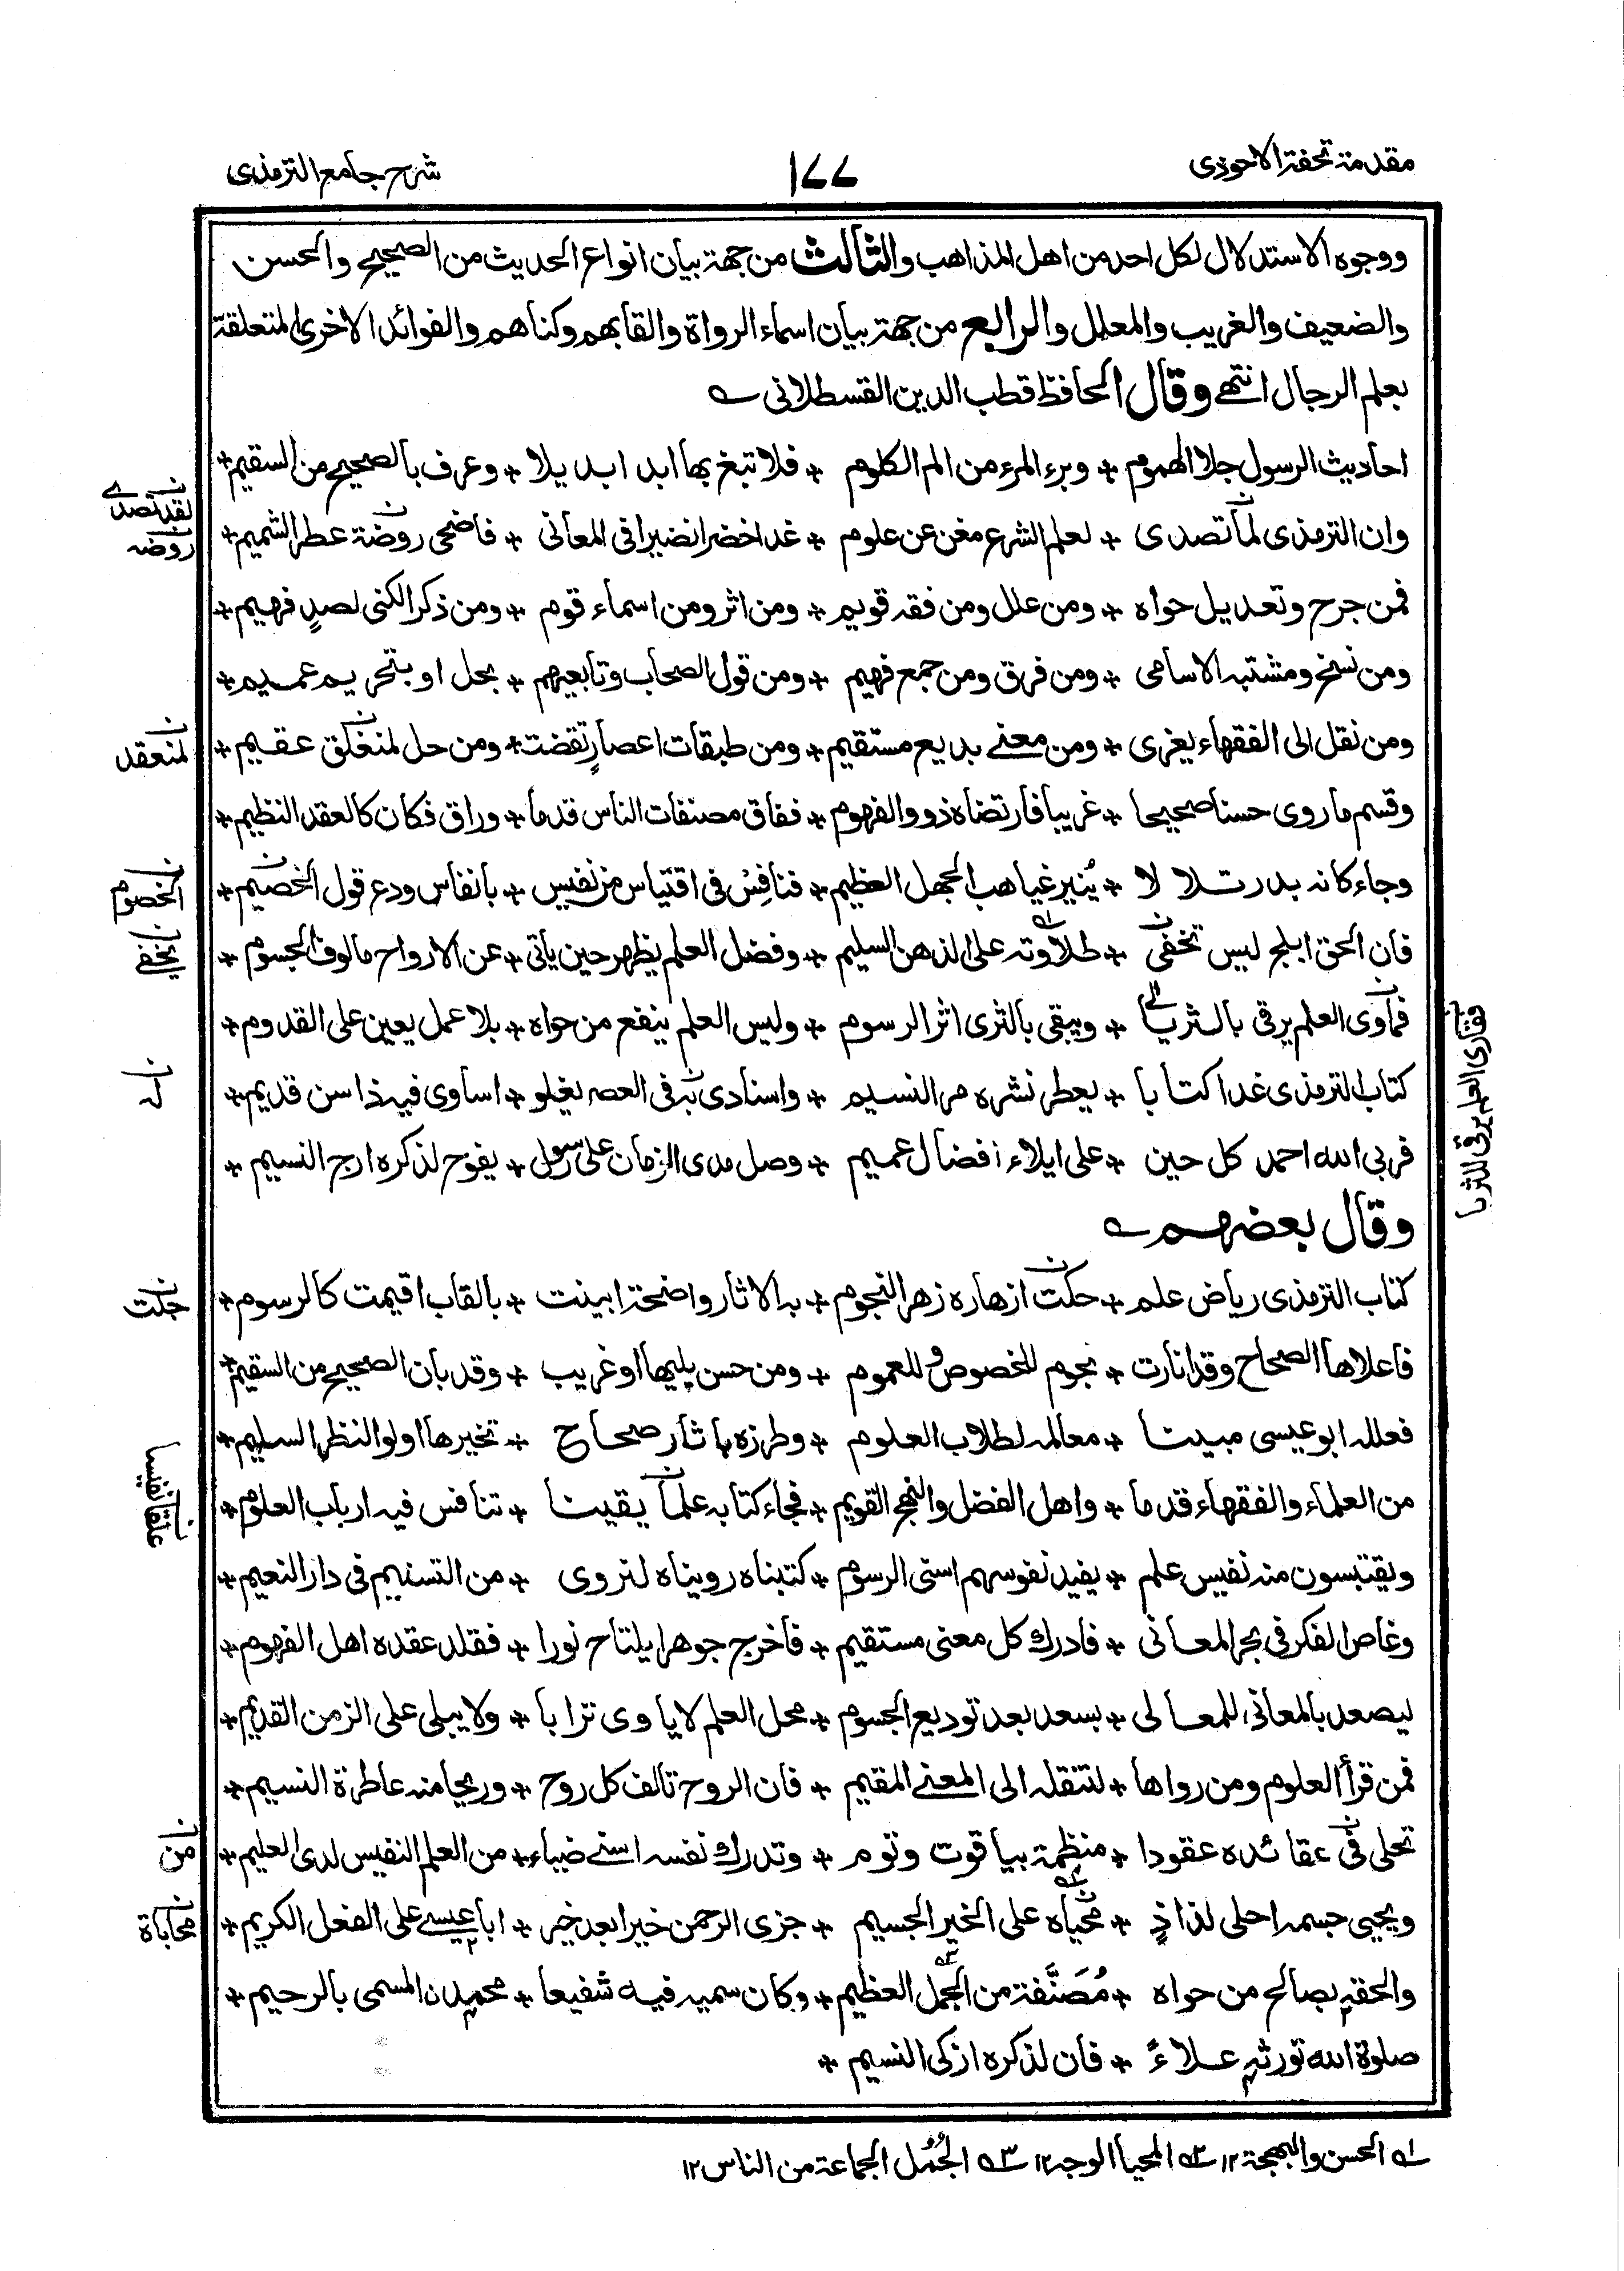 مقدمة تحفة الاحوذى
١٧٧
شرح جامع الترمذى
ووجوه الاستدلال لكل احد من اهل المذاهب والثالث من جهة بيان انواع الحديث من الصحيح والحسن
والضعيف والغريب والمعلل والرابع من جهة بيان اسماء الرواة والقابهم وكناهم والفوائد الاخرى المتعلقة
بعلم الرجال انتهى وقال الحافظ قطب الدين القسطلانى ؎
احاديث الرسول جلا الهموم + وبرء المرء من الم الكلوم + فلا تبغ بها ابدا بديلا + وعرف بالصحيح من السقيم +
وان الترمذى لما تصدى + لعلم الشرع مغن عن علوم + غدا خضرا نضيرا فى المعانى + فاضحى روضة عطر الشميم +
لقد تصدے
روضه
فمن جرح وتعديل حواه + ومن علل ومن فقه قويم + ومن اثر ومن اسماء قوم + ومن ذكر الكنى لصدٍ فهيم +
ومن نسخ ومشتبه الاسامى + ومن فرق ومن جمع فهيم + ومن قول الصحاب وتابعيهم + بحل او بتحريم عميم +
ومن نقل الى الفقهاء يغرى + ومن معنے بديع مستقيم + ومن طبقات اعصارٍ تقضت + ومن حل لمنغلق عقيم +
لمنعقد
وقسم ما روى حسنا صحيحا + غريبا فارتضاه ذوو الفهوم + ففاق مصنفات الناس قدما + وراق فكان كالعقد النظيم +
وجاء كانه بدر تلا لا + يُنير غياهب الجهل العظيم + فنافِسْ فى اقتباس من نفيس + بانفاس ودع قول الخصيم +
الخصوم
فان الحق ابلج ليس تخفى + طلاوته على الذهن السليم + وفضل العلم يظهر حين ياتى + عن الارواح مالوف الجسوم +
يخفے
فماوى العلم يرقى بالثريا + ويبقى بالثرى اثر الرسوم + وليس العلم ينفع من حواه + بلا عمل يعين على القدوم +
فقارى العلم يرقى للثريا
كتاب الترمذى غدا كتابا + يعطر نشره مر النسيم + واسنادى به فى العصر يغلو + اساوى فيه ذا سن قديم +
له
فربى الله احمد كل حين + على ايلاء افضال عميم + وصل مدى الزمان على رسول + يفوح لذكره ارج النسيم +
وقال بعضهم ؎
كتاب الترمذى رياض علم + حكت ازهاره زهر النجوم + به الاثار واضحة ابينت + بالقاب اقيمت كالرسوم +
جلت
فاعلاها الصحاح وقد انارت + نجوم للخصوص و للعموم + ومن حسن يليها او غريب + وقد بان الصحيح من السقيم +
فعلله ابو عيسى مبينا + معالمه لطلاب العلوم + وطرزه باثار صحاح + تخيرها اولو النظر السليم +
من العلماء والفقهاء قدما + واهل الفضل والنهج القويم + فجاء كتابه علما يقينا + تنافس فيه ارباب العلوم +
علقا نفيسا
ويقتبسون منه نفيس علم + يفيد نفوسهم اسنى الرسوم + كتبناه رويناه لنروى + من التسنيم فى دار النعيم +
وغاص الفكر فى بحر المعانى + فادرك كل معنى مستقيم + فاخرج جوهرا يلتاح نورا + فقلد عقده اهل الفهوم +
ليصعد بالمعانى للمعالى + بسعد بعد توديع الجسوم + محل العلم لا ياوى ترابا + ولا يبلى على الزمن القديم +
فمن قرأ العلوم ومن رواها + لتنقله الى المعنے المقيم + فان الروح تالف كل روح + وريحا منه عاطرة النسيم +
تحلى فى عقائده عقودا + منظمة بياقوت وتوم + وتدرك نفسه اسنے ضياء + من العلم النفيس لدى العليم +
من
ويحيى جسمه احلى لذاذٍ + محياه على الخير الجسيم + جزى الرحمن خيرا بعد خير + ابا عيسے على الفعل الكريم +
محاباة
والحقه بصالح من حواه + مُصَنَّفة من الجمل العظيم + وكان سميه فيه شفيعا + محمد ن المسمى بالرحيم +
صلوة الله تورثه علاءً + فان لذكره ازكى النسيم +
؎١ الحسن والبهجة ١٢ ؎٢ المحيا الوجه ١٢ ؎٣ الجُمُل الجماعة من الناس ١٢